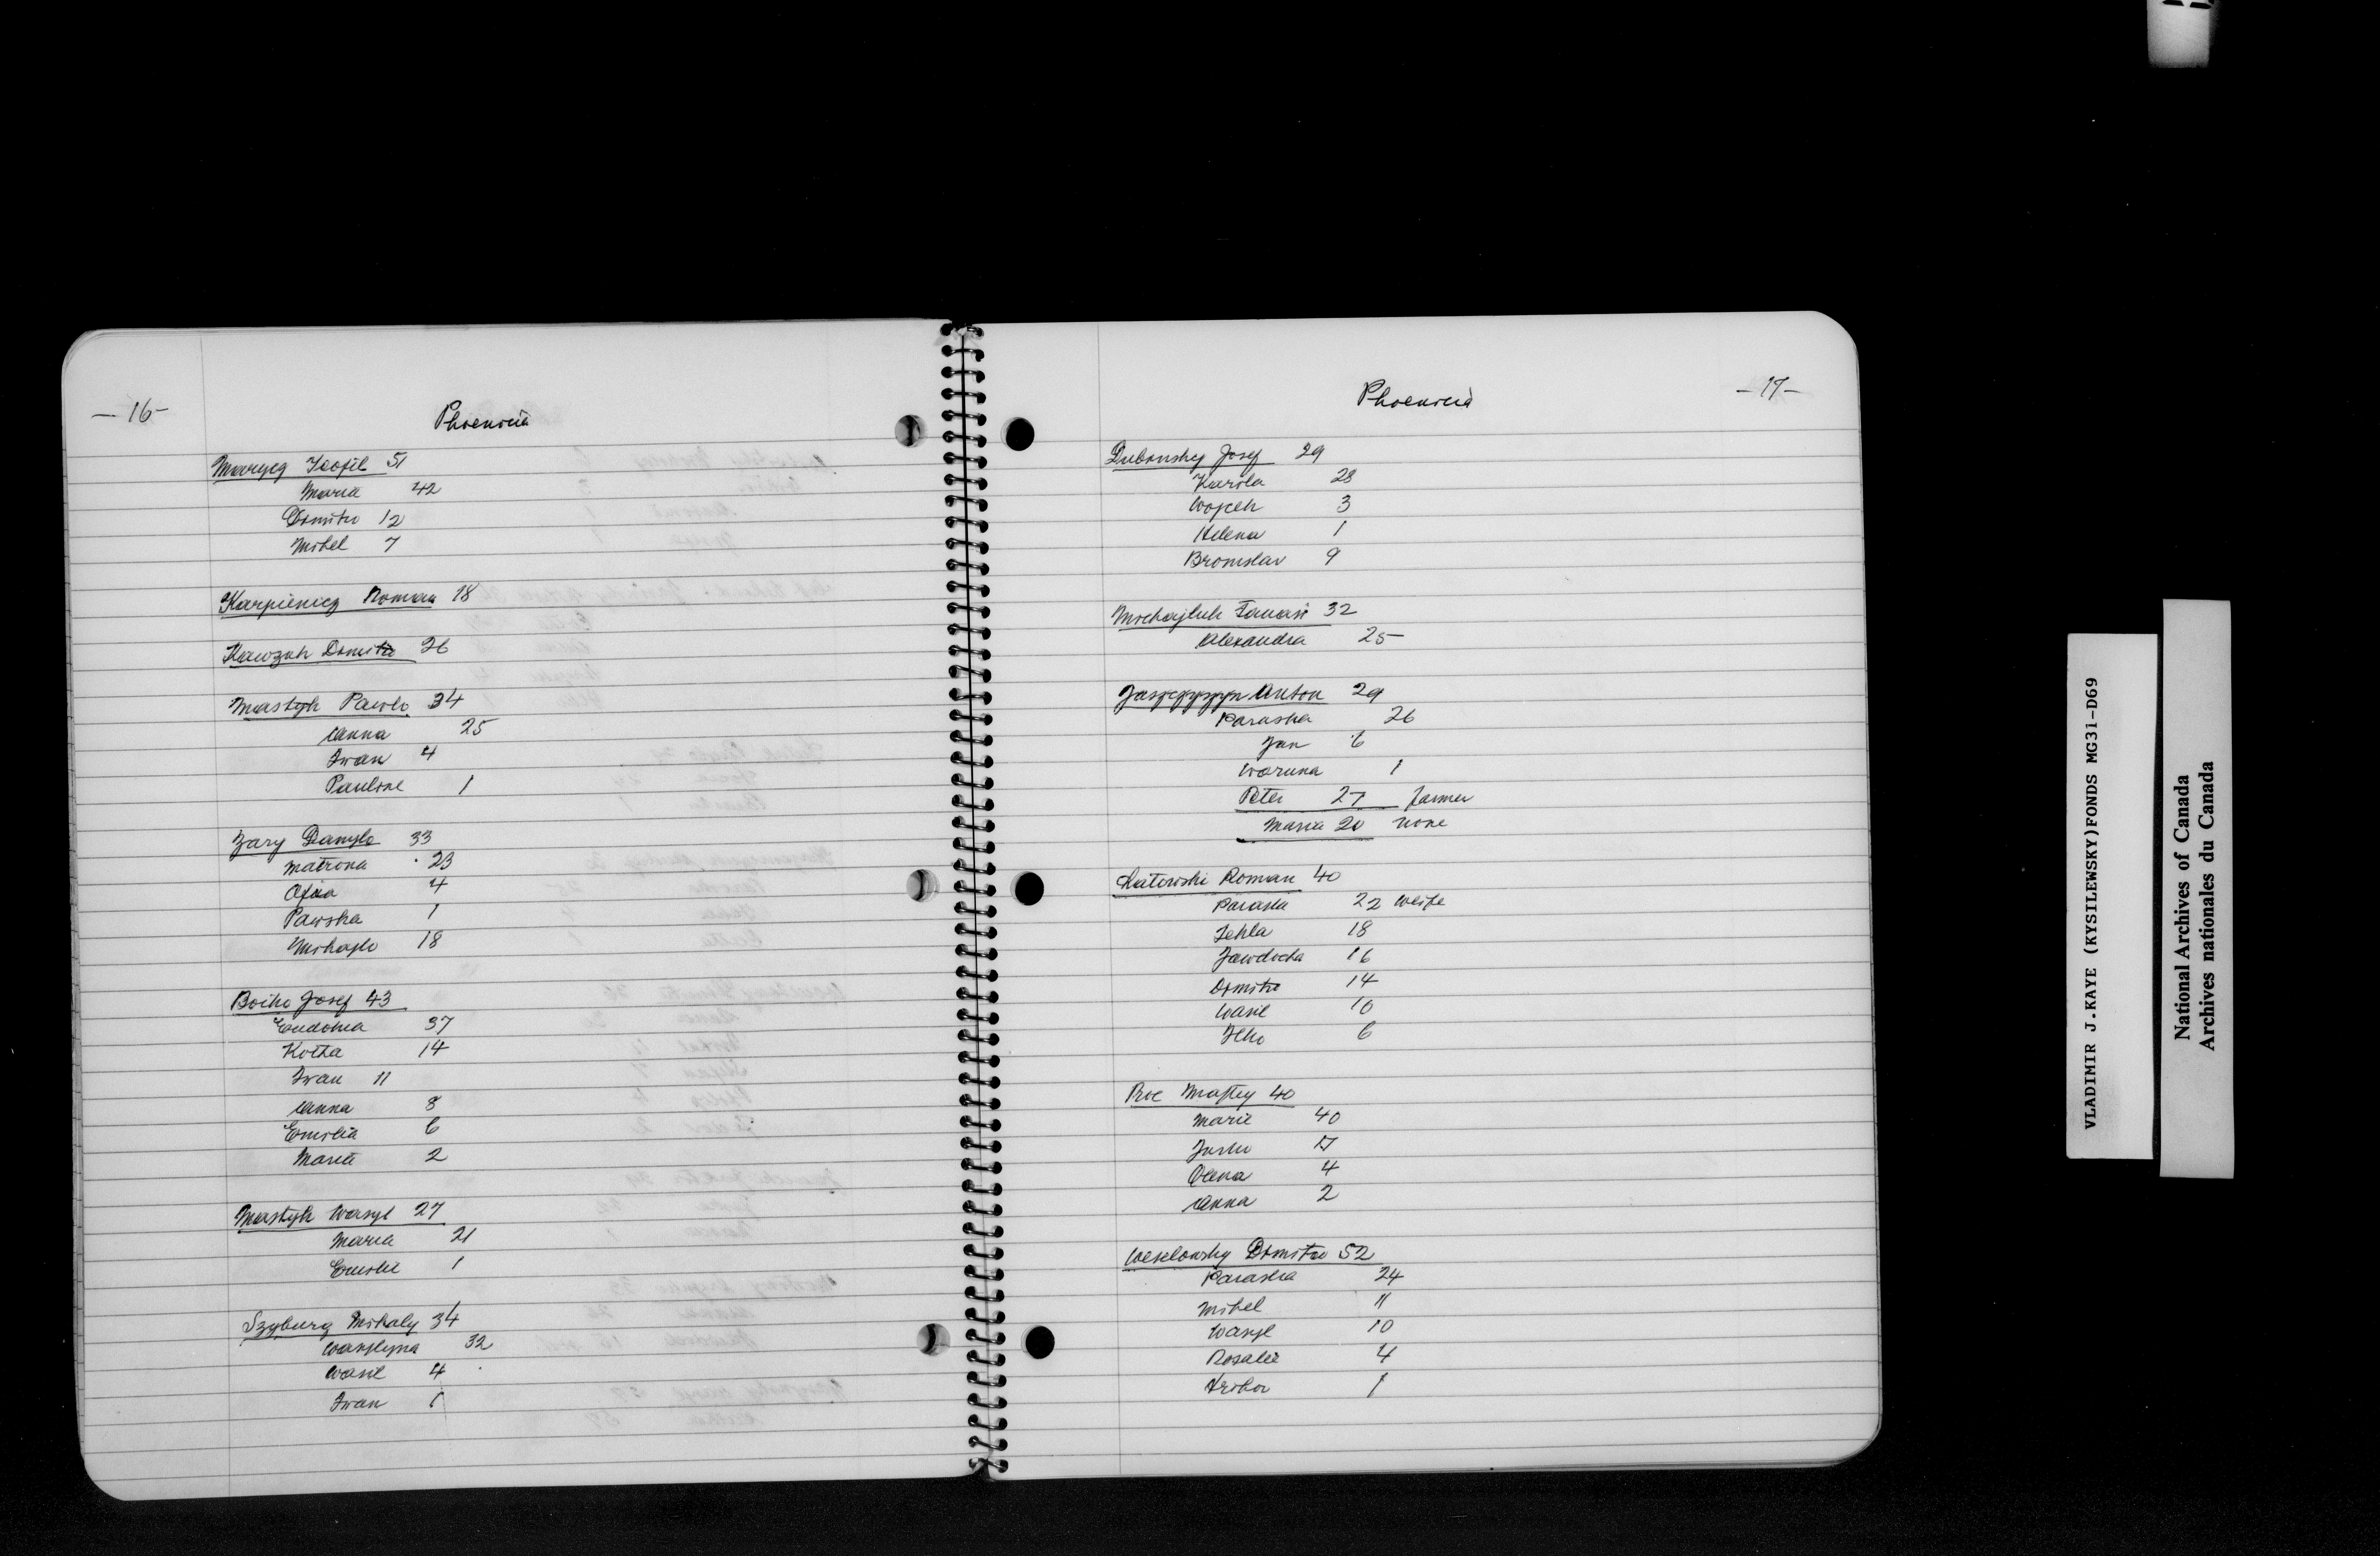 — 16 —
Phoenicia
Marycz Teofil 51
Maria 42
Dmitro 12
Mihel 7
Karpienicz Roman 18
Kawzuk Dmitro 26
Mastyk Pawlo 34
Anna 25
Iwan 4
Pauline 1
Zary Danylo 33
Matrona 23
Ofia 4
Pawska 1
Mihajlo 18
Boiko Josef 43
Eudokia 37
Kotza 14
Iwan 11
Anna 8
Emilia 6
Maria 2
Mastyk Wasyl 27
Maria 21
Emilie 1
Szyburg Mihaly 34
Wasylyna 32
Wasil 4
Iwan 1
— 17 —
Phoenicia
Dubonsky Josef 29
Karola 28
Wojceh 3
Helena 1
Bronislav 9
Michajluk Tanasi 32
Alexandra 25
Anton 29
Paraska 26
Jan 6
Waruna 1
Peter 27 farmer
Maria 20 none
Roman 40
Paraska 22 wife
Tekla 18
Jawdocha 16
Dmitro 14
Wasil 10
Ilko 6
Roe Maftey 40
Marie 40
17
Olena 4
Anna 2
Weselowsky Dmitro 52
Paraska 24
Mihel 11
Wasyl 10
Rosalie 4
Hrihor 1
VLADIMIR J.KAYE (KYSILEWSKY)FONDS MG31-D69
National Archives of Canada
Archives nationales du Canada